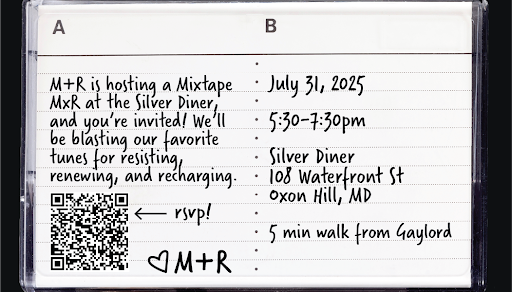 A
B
M+R is hosting a Mixtape
MxR at the Silver Diner,
and you're invited! We'll
be blasting our favorite
tunes for resisting,
renewing, and recharging.
← rsvp!
♡M+R
July 31, 2025
5:30-7:30pm
Silver Diner
108 Waterfront St
Oxon Hill, MD
5 min walk from Gaylord